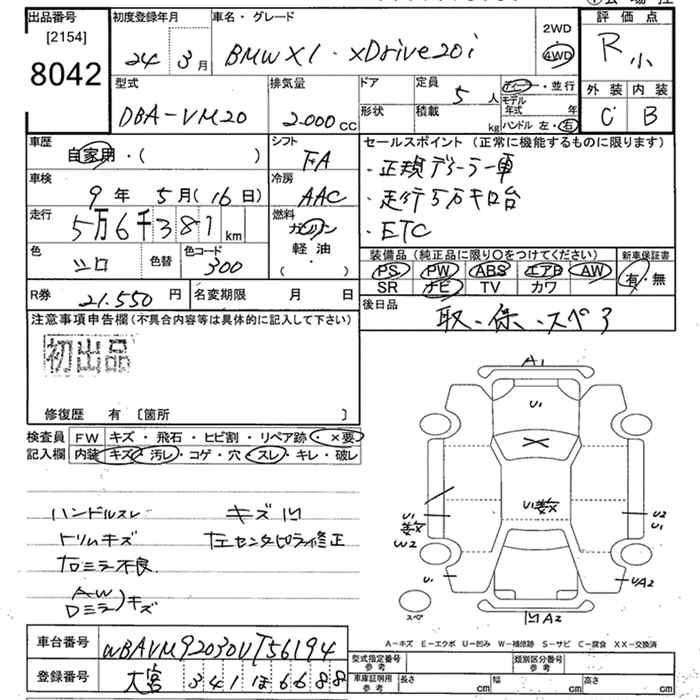 出品番号 初度登録年月 車名・グレード 2WD 評価点
[2154] 24年 3月 BMW X1・xDrive20i 4WD R 小
8042 型式 排気量 ドア 定員 5人 ディーラー・並行 外装 内装
DBA-VM20 2.000cc 形状 積載 kg モデル年式 年 C B
ハンドル 左・右
車歴 シフト セールスポイント(正常に機能するものに限ります)
自家用・( ) FA ・正規ディーラー車
車検 9年 5月(16日) 冷房 AAC ・走行5万キロ台
走行 5万6千381km 燃料 ガソリン ・ETC
軽油
( )
色 シロ 色替 色コード 300 装備品(純正品に限り○をつけてください) 新車保証書
PS PW ABS エアB AW 有・無
SR ナビ TV カワ
R券 21.550円 名変期限 月 日 後日品 取・保・スペ3
注意事項申告欄(不具合内容等は具体的に記入して下さい)
初出品
修復歴 有 [箇所 ]
検査員 FW キズ・飛石・ヒビ割・リペア跡・×要
記入欄 内装 キズ・汚レ・コゲ・穴・スレ・キレ・破レ
ハンドルスレ キズ凹
トリムキズ 左センターピラー修正
右ミラー不良
AW
Dミラー)キズ
A1
U1
U1
U1 W2
U2 U1
U1 U/A2
スペア 凹A2
A-キズ E-エクボ U-凹み W-補修跡 S-サビ C-腐食 XX-交換済
車台番号 WBAVM92030VT56194 型式指定番号 参考 類別区分番号 参考
登録番号 大宮 341 ほ 6688 車庫証明用 参考 長さ cm 幅 cm 高さ cm